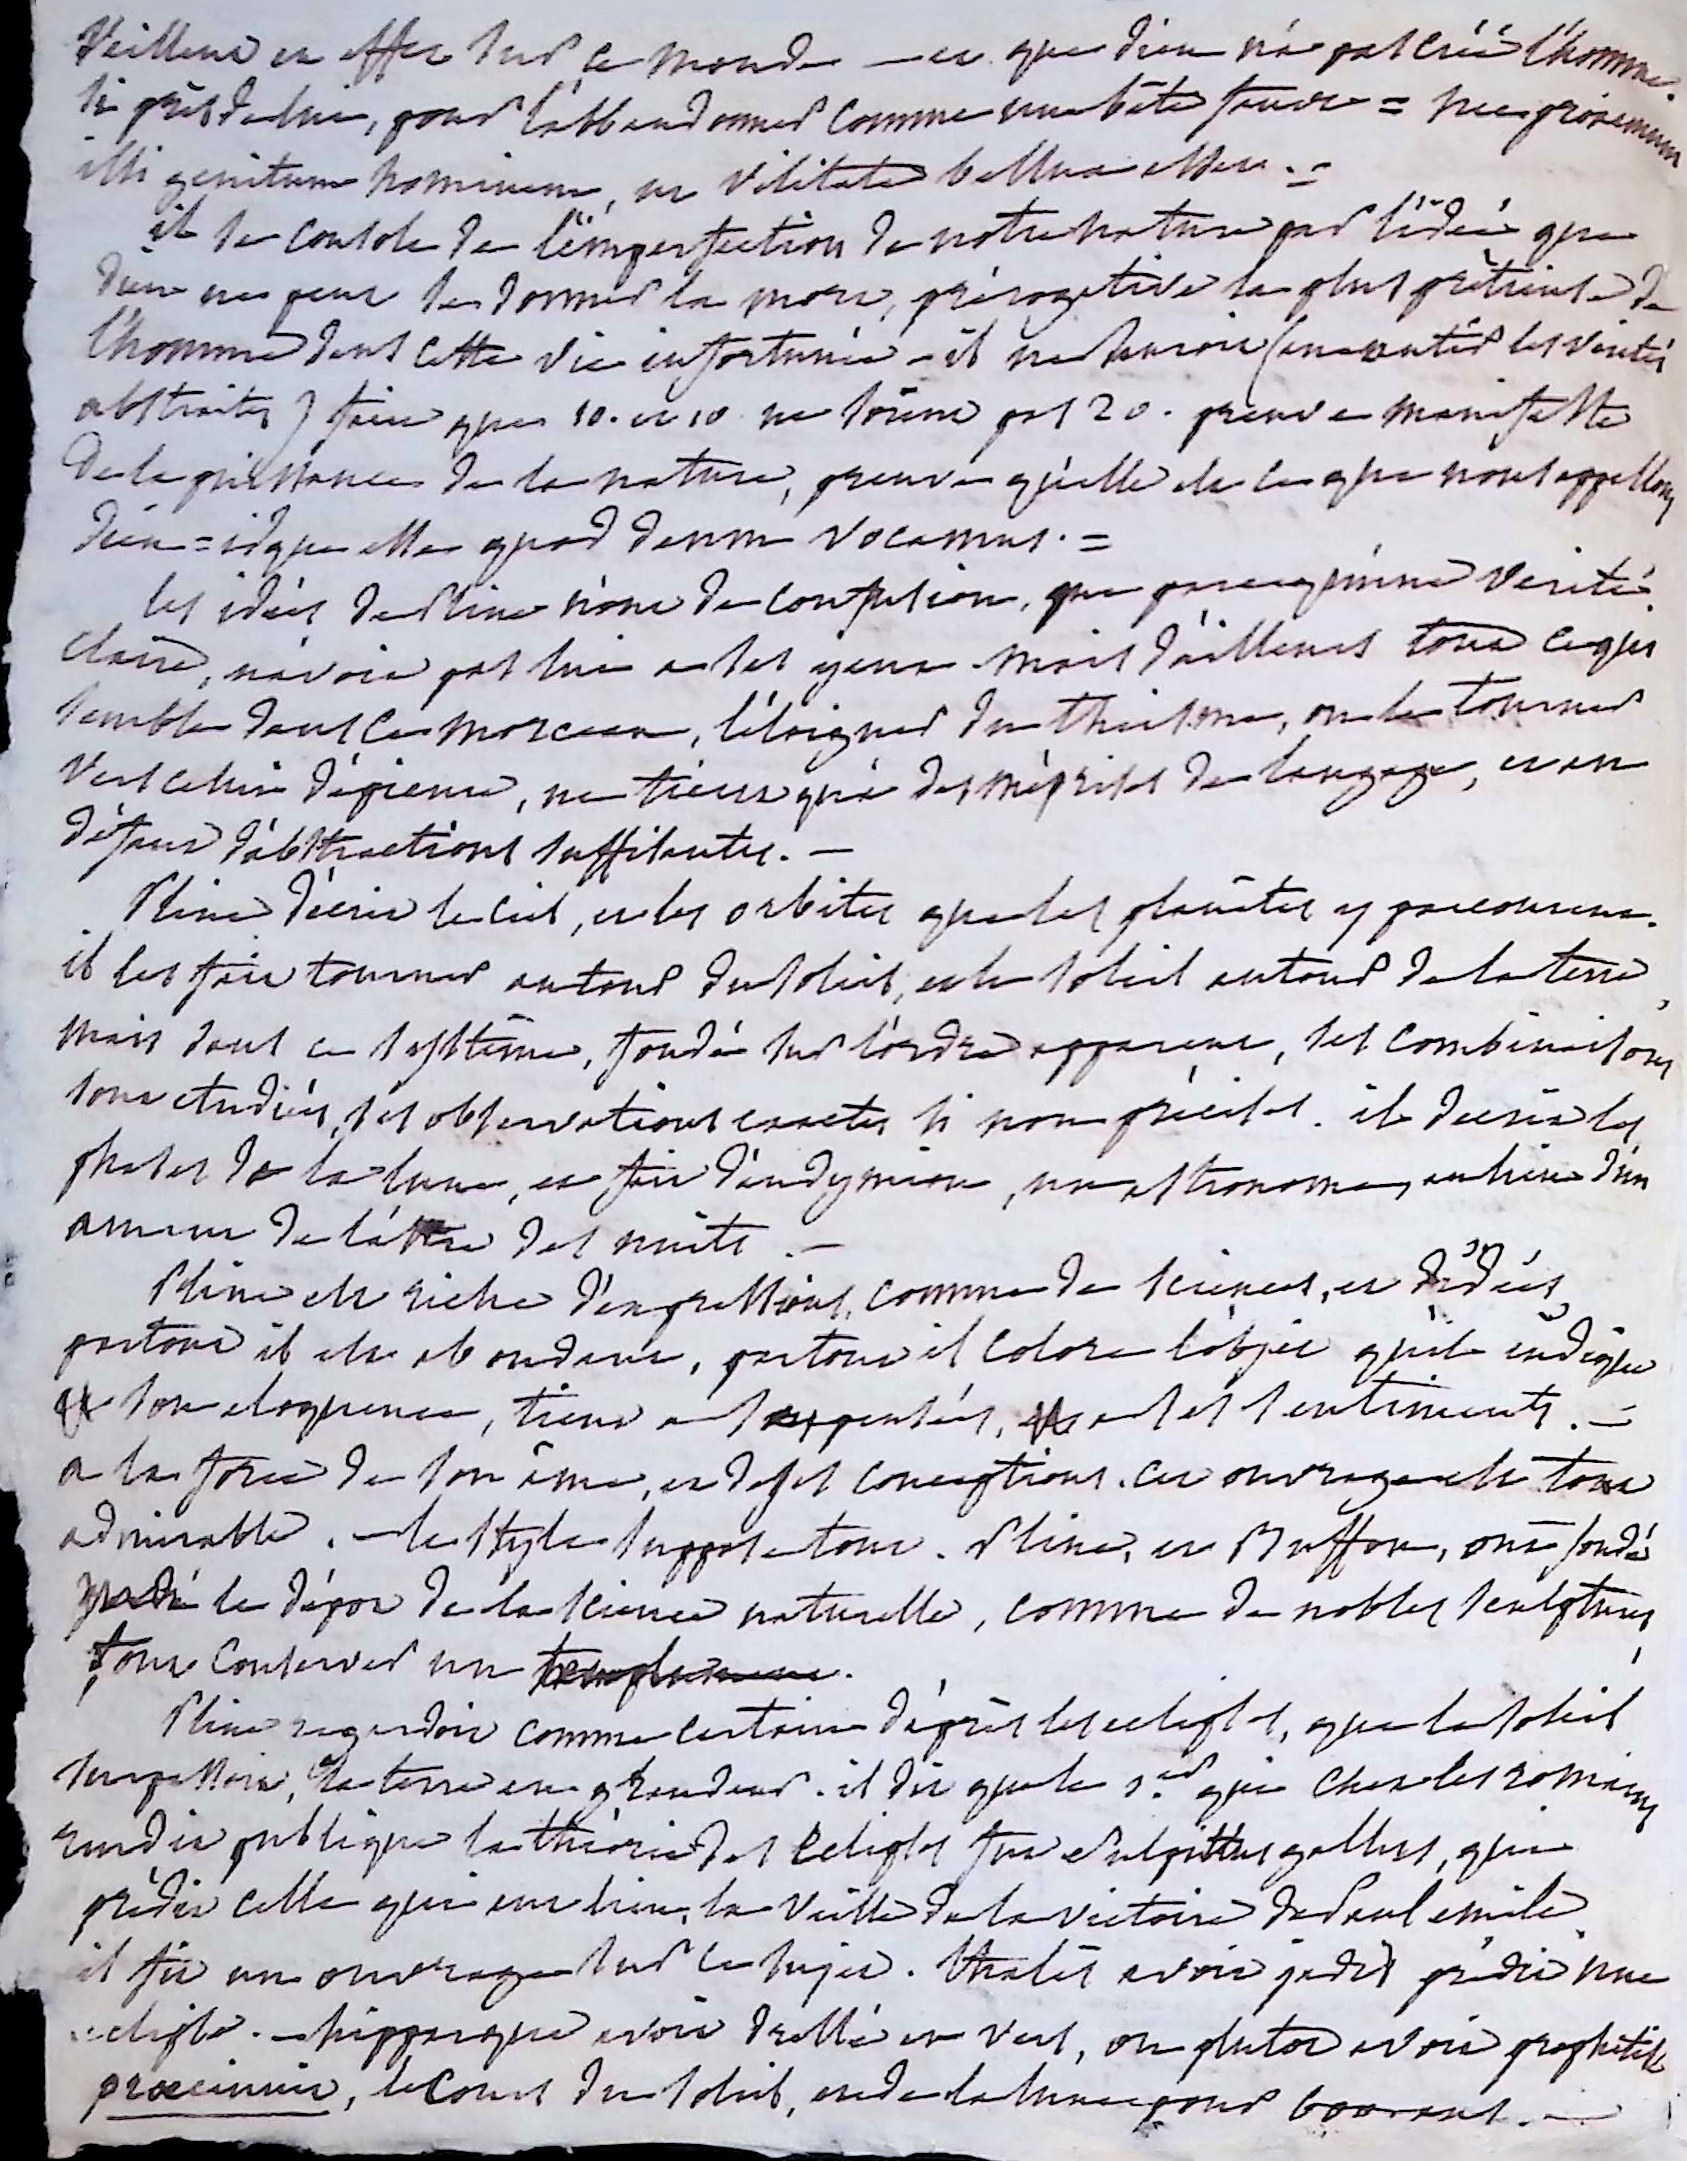 veillent en effet sur ce monde — et que dieu n'a pas créé l'homme
si près de lui, pour l'abbandonner comme une bête fauve = nec proximum
illi genitum hominem, ut vilitate belluas esset. =
il se console de l'imperfection de notre nature par l'idée que
dieu ne peut se donner la mort, prérogative la plus prétieuse de
l'homme dans cette vie infortunée - il ne sauroit ( les vérités
abstraites) faire que 10. et 10 ne soient pas 20. preuve manifeste
de la puissance de la nature, preuve qu'elle est ce que nous appellons
dieu = idque esse quod deum vocamus. =
les idées de Pline n'ont de confusion, que parcequ'une vérité
claire, n'avoit pas lui a ses yeux mais d'ailleurs tout ce qui
semble dans ce morceau, l'éloigner du théisme, ou le tourner
vers celui d'épicure, ne tient qu'à des méprises de langage, et au
défaut d'abstractions suffisantes. —
Pline décrit le ciel, et les orbites que les planètes y parcourent.
il les fait tourner autour du soleil, et le soleil autour de la terre,
mais dans ce systême, fondé sur l'ordre apparent, ses combinaisons
sont etudiées, ses observations exactes si non précises. il décrit les
phases de la lune, et fait d'endymion, un astronome, au lieu d'un
amant de l'astre des nuits. —
Pline est riche d'expressions, comme de sciences, et d'idées
partout il est abondant, partout il colore l'objet qu'il indique
son eloquence, tient a ses pensées, a ses sentiments. —
a la force de son âme, et de ses conceptions. cet ouvrage est tout
admirable. — le style suppose tout. Pline, et Buffon, ont fondé
le dépot de la science naturelle, comme de nobles sculptures,
font conserver un
Pline regardoit comme certain d'après les eclipses, que le soleil
surpassoit, la terre en grandeur. il dit que le 1.er qui chez les romains
rendit publique la théorie des eclipses fut Sulpitius gallus, qui
prédit celle qui eut lieu, la veille de la victoire de Paul emile
il fit un ouvrage sur ce sujet. Thalès avoit jadis prédit une
eclipse. — hipparque avoit dressé en vers, ou plutot avoit prophétisé
præcinuit, le cours du soleil, et de la lune pour 600 ans. —